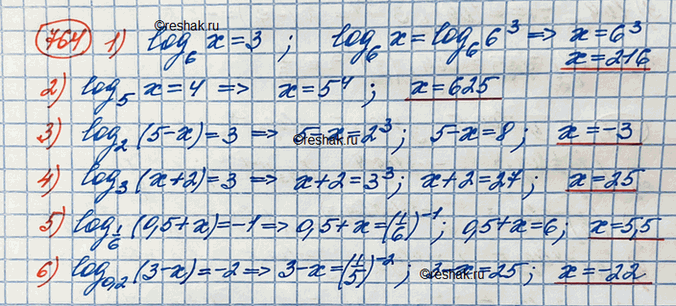 ©reshak.ru
764 1) log₆ x = 3 ; log₆ x = log₆ 6³ => x = 6³
x = 216
2) log₅ x = 4 => x = 5⁴ ; x = 625
3) log₂ (5-x) = 3 => 5-x = 2³; 5-x = 8; x = -3
4) log₃ (x+2) = 3 => x+2 = 3³; x+2 = 27; x = 25
5) log_{1/6} (0,5+x) = -1 => 0,5+x = (1/6)⁻¹; 0,5+x = 6; x = 5,5
6) log_{0,2} (3-x) = -2 => 3-x = (1/5)⁻²; 3-x = 25; x = -22
©reshak.ru